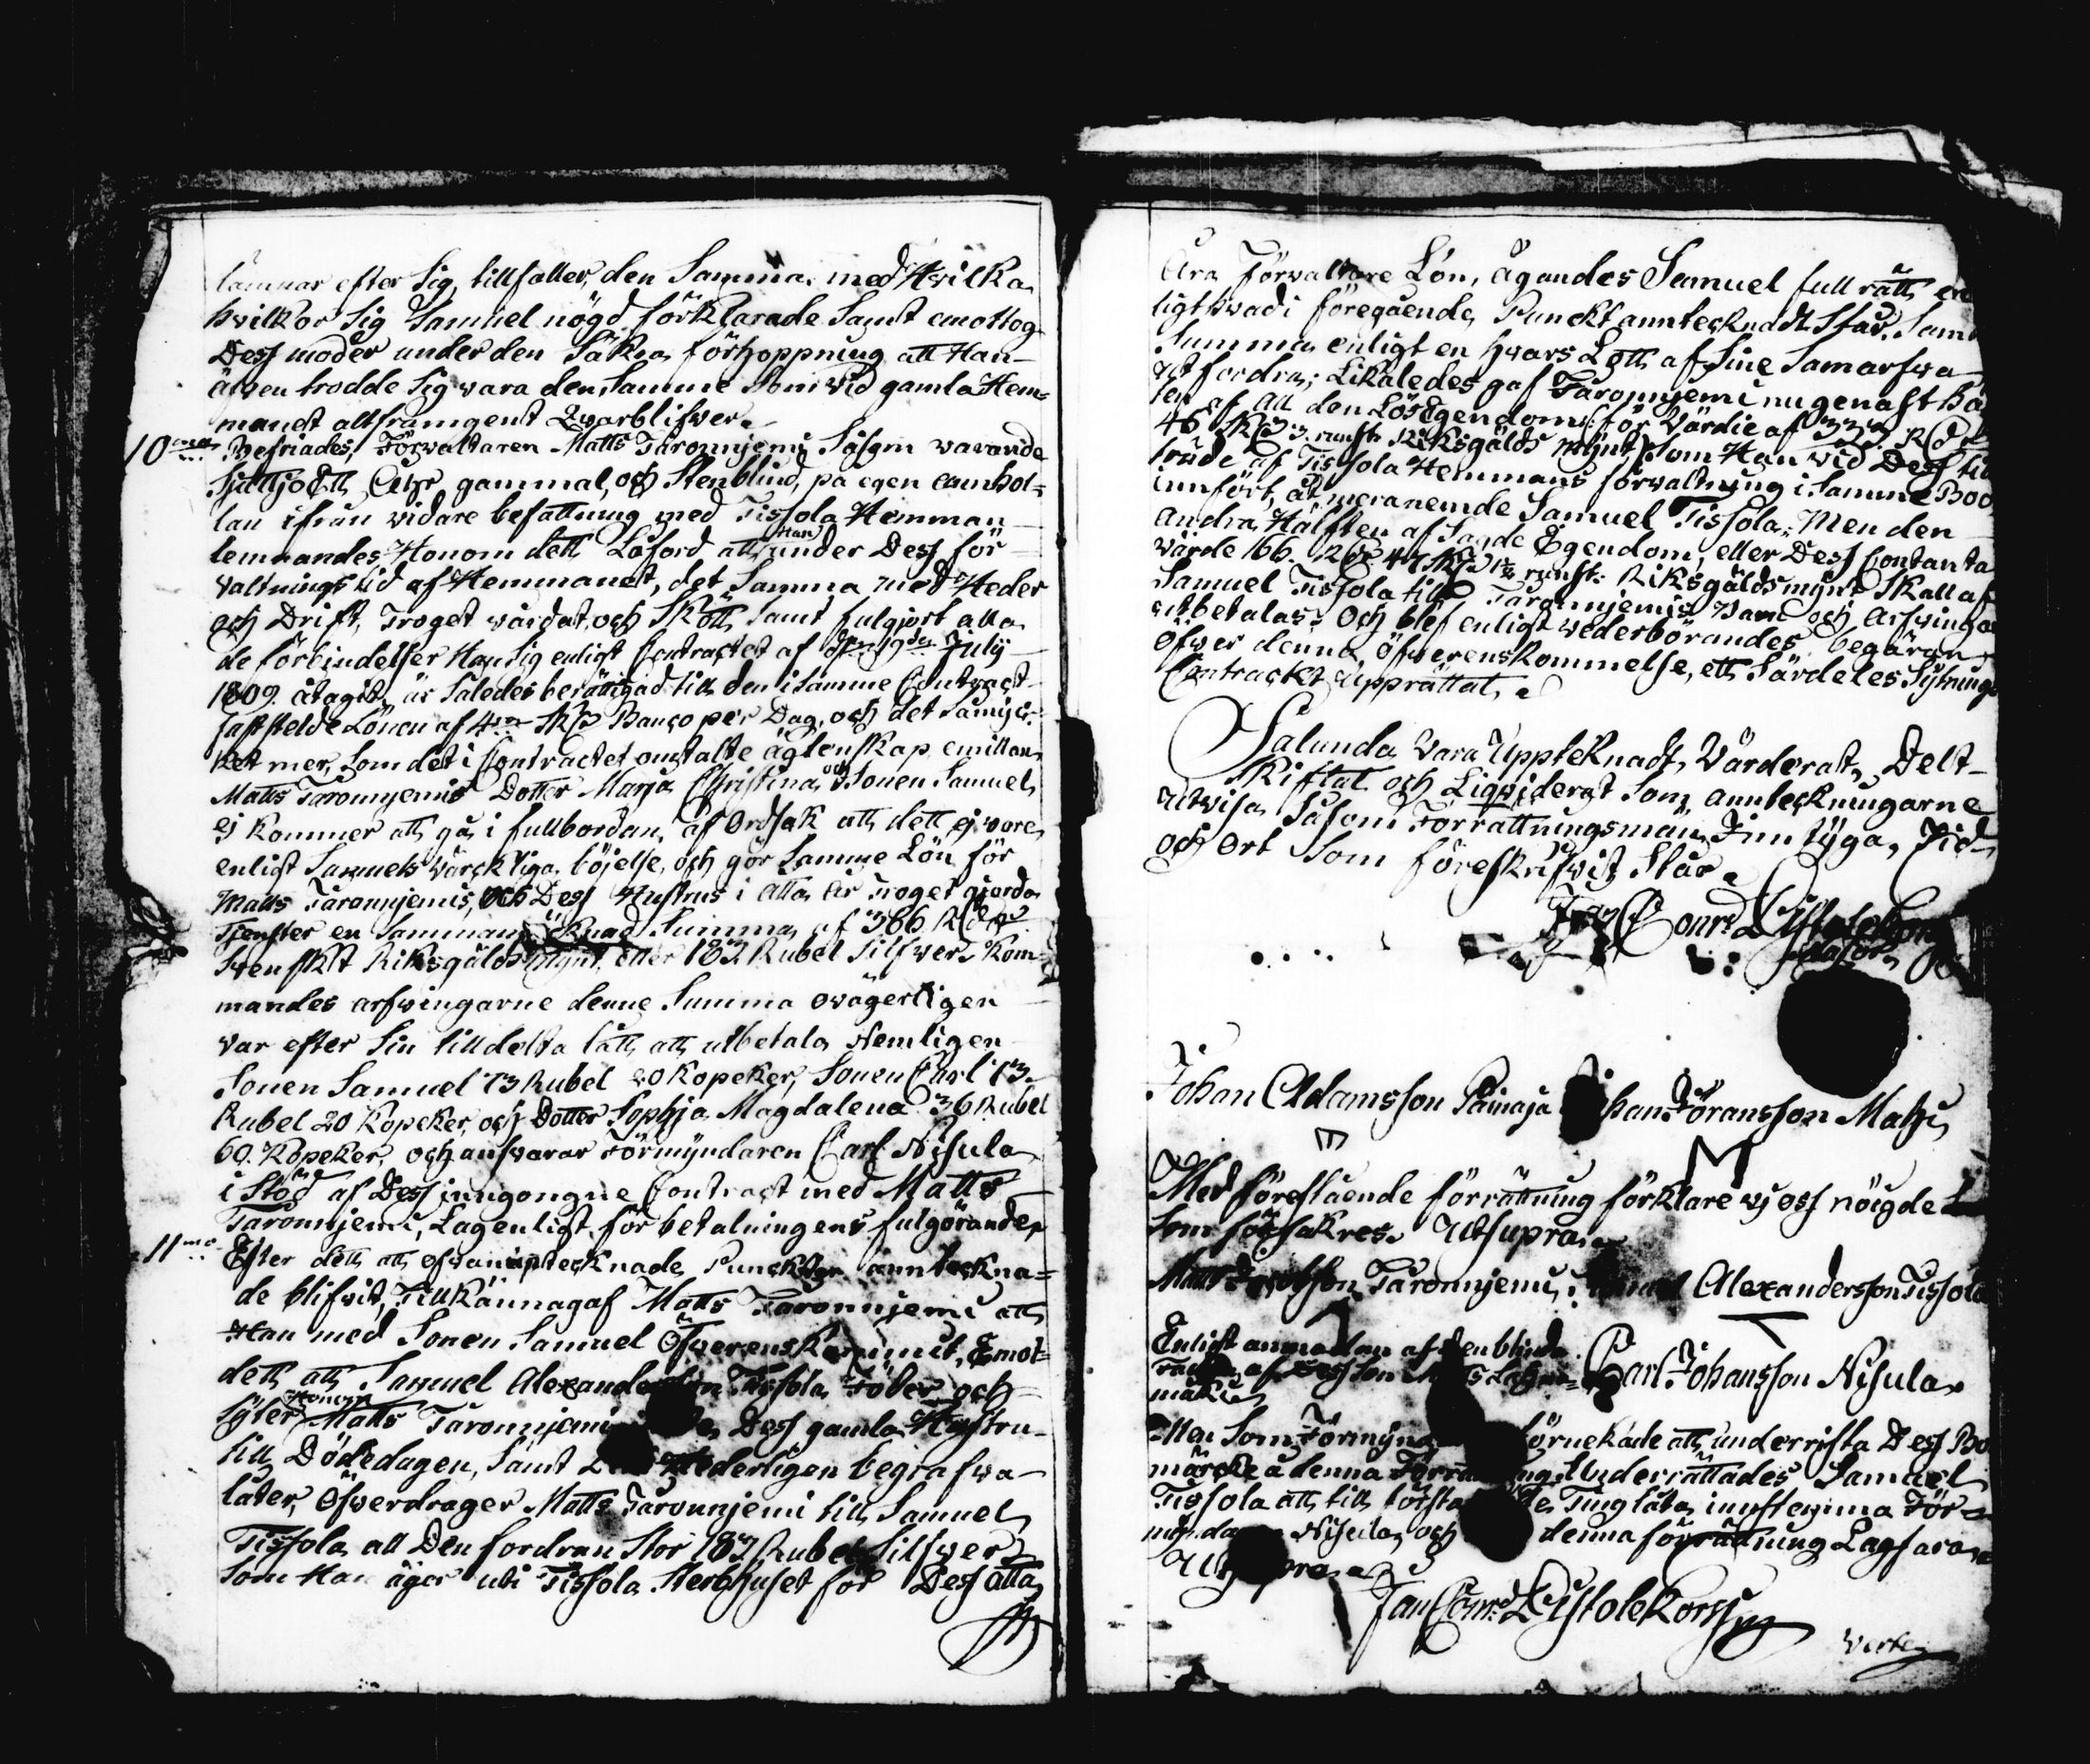 lämnar efter sig, tillfaller, den Samma med Hvilka
hvilkor sig Samuel nögd förklarade Samt emottog
Dess moder under den Säkra förhoppning att Han
äfven trodde Sig vara den Samme Som vid gamla Hem=
manet allframgent Qvarblifver.
10mo Befriades, Förvaltaren Matts Taronnjemi Såsom varande
Sjuttijo Ett Åhr gammal, och Stenblind, på egen anhol=
lan ifrån vidare befattning med Tissola Hemman
lemnandes Honom dett Låford att Han under Dess för=
valtnings tid af Hemmanet, det Samma med Heder
och Drift, Troget vårdat, och Skött Samt fulgjort alla
de förbindelser Han Sig enligt Contractet af den 19de July
1809. åtagit, är Således berättigad till den i Samme Contract
fastställde Lönen af 4ra Sk. Banco per Dag, och det Såmyc=
ket mer, Som det i Contractet omtalte ägtenskap emillan
Matts Taronnjemis Dotter Marja Christina och Sonen Samuel
ej kommer att gå i fullbordan, af Ordsak att dett ej vore
enligt Samuels värckliga böjelse, och gör Samme Lön för
Matts Taronnjemis, och Dess Hustrus i åtta år Troget gjorda
Tjenster en Samman räknad Summa af 366 Rd
Svenskt Riksgälds mynt eller 183 Rubel Silfver. Kom=
mandes arfvingarne denne Summa ovägerligen
var efter Sin tilldelta lått att utbetala Nemligen
Sonen Samuel 73 Rubel 20 Kopeker, Sonen Carl 73
Rubel 20 Kopeker, och Dotter Sophja Magdalena 36 Rubel
60. Kopeker, och ansvarar Förmyndaren Carl Nisula
i Stöd af Dess inngongne Contract med Matts
Taronnjemi, Lagenligt för betalningens fulgörande.
11mo Efter dett att ofvan uptecknade Punckter annteckna=
de blifvit, Tillkännagaf Matts Taronnjemi att
Han med Sonen Samuel Öfverenskommit, Emot=
dett att Samuel Alexandersson Tissola Föder och
Syter Honom Matts Taronnjemi Dess gamla Hustru
till Dödedagen, Samt Hederligen begrafva
låter, Öfverdrager Matts Taronnjemi till Samuel
Tissola all Den fordran Stor 183 Rubel Silfver
Som Han äger uti Tissola Sterbhuset för Dess åtta
Åra Förvaltare Lön, ägandes Samuel full rätt en
ligt hvad i föregående Punckt anntecknadt Står. Sam
Summa enligt en hvars Lott af Sine Samarfva
ut fordra; Likaledes gaf Taronnjemi nu genast
af all den Lösegendom för Värdie af 333 Rd
46 Sk. 3 runst. Riksgälds mynt, Som Han vid Dess
träde af Tissola Hemmans förvaltning i Samme Boo
innfört, åt meranemde Samuel Tissola; Men den
andra Hälften af Sagde Egendom, eller Dess Contanta
värde 166. Rd 47 Sk. 1½ runst. Riksgälds mynt Skall af
Samuel Tissola till Taronnjemis Barn och Arfvinga
utbetalas. Och blef enligt vederbörandes begäran
öfver denna öfverenskommelse, ett Särdeles Sytnings
Contrackt Upprättat.
Salunda vara Uppteknadt, Värderat, Delt
Skiftat och Liqviderat Som annteckningarne
utvisa Såsom Förrättningsmän Inntyga, Tid
och Ort Som föreskrifvit Står.
Jan Conr:d Pistolekors
Johan Adamsson Painaja Johan Göransson Matzi
Med föreslående förrättning förklare vj oss nöigde
Som försäkres. Ut Supra.
Matts Taronnjemi, Samuel Alexandersson Tissola
Enligt anmodan af Stenblinde
af Dess Son Matts
Carl Johansson Nisula
Men Som Förmyndaren förnekade att underrifta Dess Bo
märcke å denna Förrättning Underrättades Samuel
Tissola att till första Ting låta innstemma För=
myndaren Nisula, och denna förrättning Lagfara
Ut Supra
Jan Conr:d Pistolekors
Verte